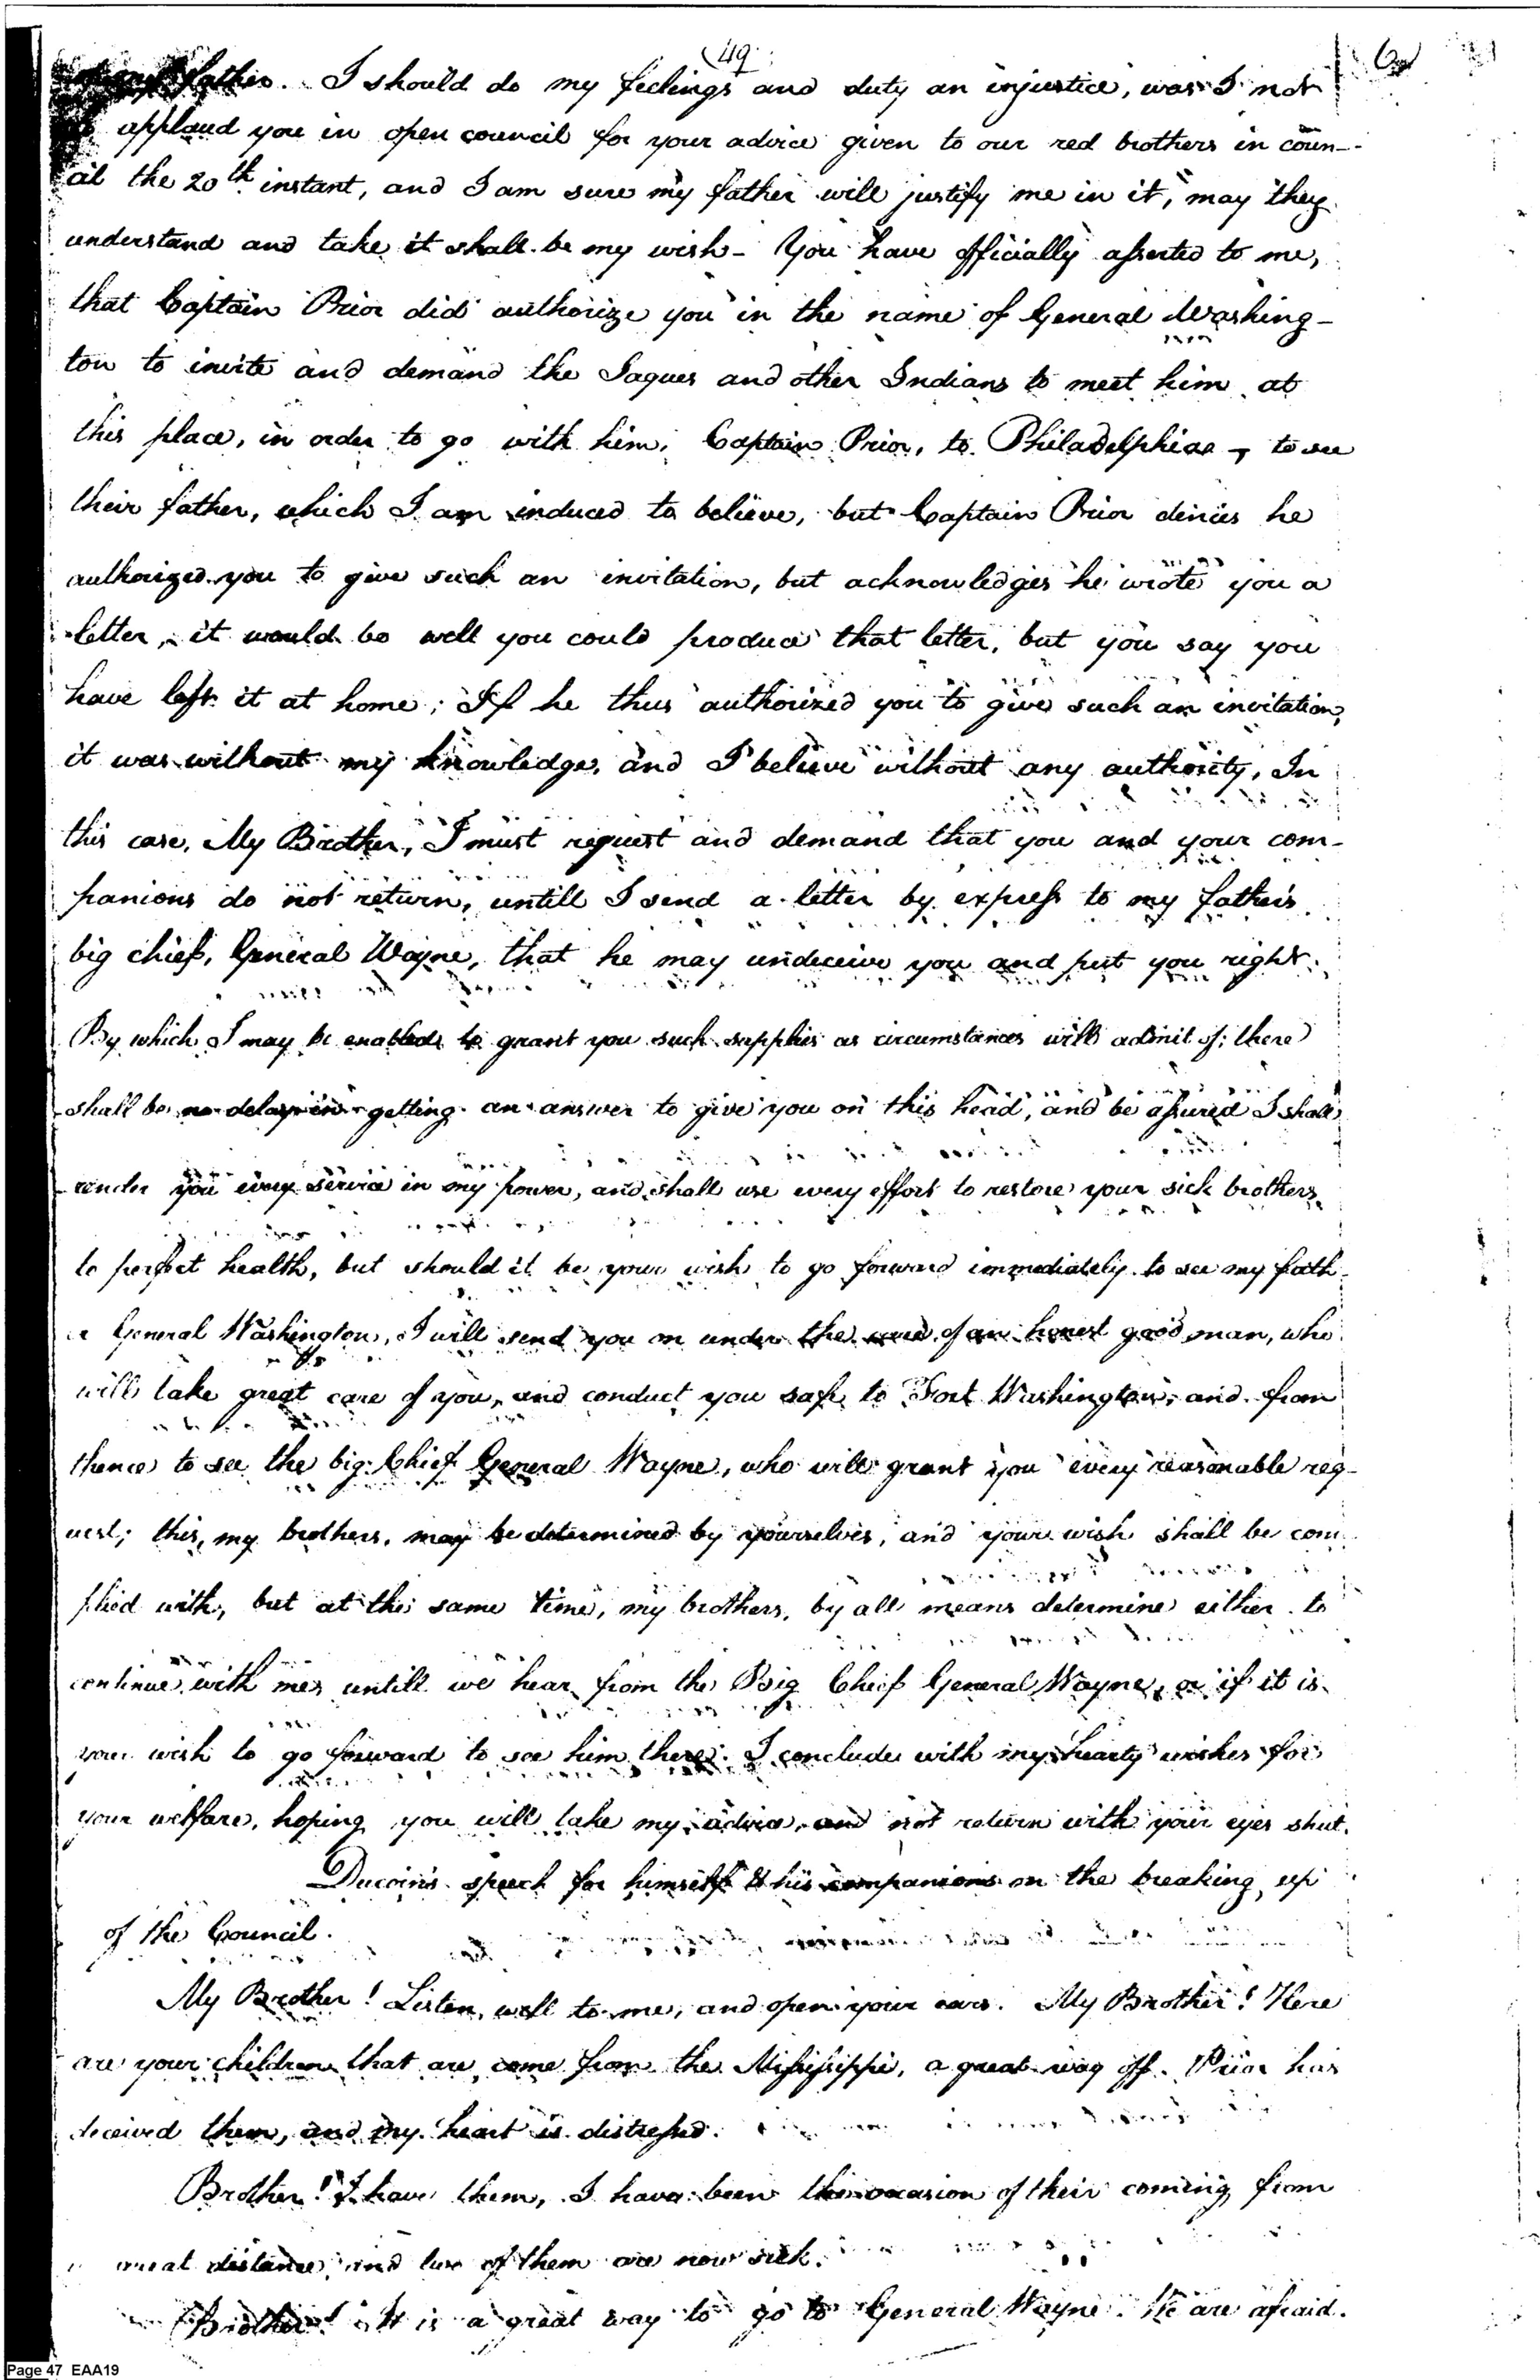 (49.
father. I should do my feelings and duty an injustice, was I not
applaud you in open council for your advice given to our red brothers in coun-
cil the 20th instant, and I am sure my father will justify me in it, may they
understand and take it shall be my wish - You have officially asserted to me,
that Captain Prior did authorize you in the name of General Washing-
ton to invite and demand the Saques and other Indians to meet him at
this place, in order to go with him, Captain Prior, to Philadelphia - to see
their father, which I am induced to believe, but Captain Prior denies he
authorized you to give such an invitation, but acknowledges he wrote you a
letter, it would be well you could produce that letter, but you say you
have left it at home; If he thus authorized you to give such an invitation,
it was without my knowledge, and I believe without any authority, In
this case, My Brother, I must request and demand that you and your com-
panions do not return, untill I send a letter by express to my father's
big chief, General Wayne, that he may undeceive you and put you right.
By which I may be enabled to grant you such supplies as circumstances will admit of; there
shall be no delay in getting an answer to give you on this head, and be assured I shall
render you every service in my power, and shall use every effort to restore your sick brothers
to perfect health, but should it be your wish to go forward immediately to see my fath-
er General Washington, I will send you on under the care of an honest good man, who
will take great care of you, and conduct you safe to Fort Washington, and from
thence to see the big Chief General Wayne, who will grant you every reasonable req-
uest; this, my brothers, may be determined by yourselves, and your wish shall be com-
plied with, but at the same time, my brothers, by all means determine either to
continue with me untill we hear from the Big Chief General Wayne, or if it is
your wish to go forward to see him there. I conclude with my hearty wishes for
your welfare, hoping you will take my advice, and not return with your eyes shut.
Ducoin's speech for himself & his companions on the breaking up
of the Council.
My Brother! Listen well to me, and open your ears. My Brother! Here
are your children that are come from the Missisippi, a great way off. Prior has
deceived them, and my heart is distressed.
Brother! I have them, I have been the occasion of their coming from
great distance, and two of them are now sick.
Brother! It is a great way to go to General Wayne. We are afraid.
Page 47 EAA19